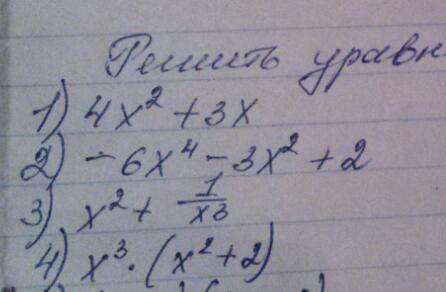 Решить уравн
1) 4x² + 3x
2) -6x⁴ - 3x² + 2
3) x² + 1/x3
4) x³ · (x² + 2)